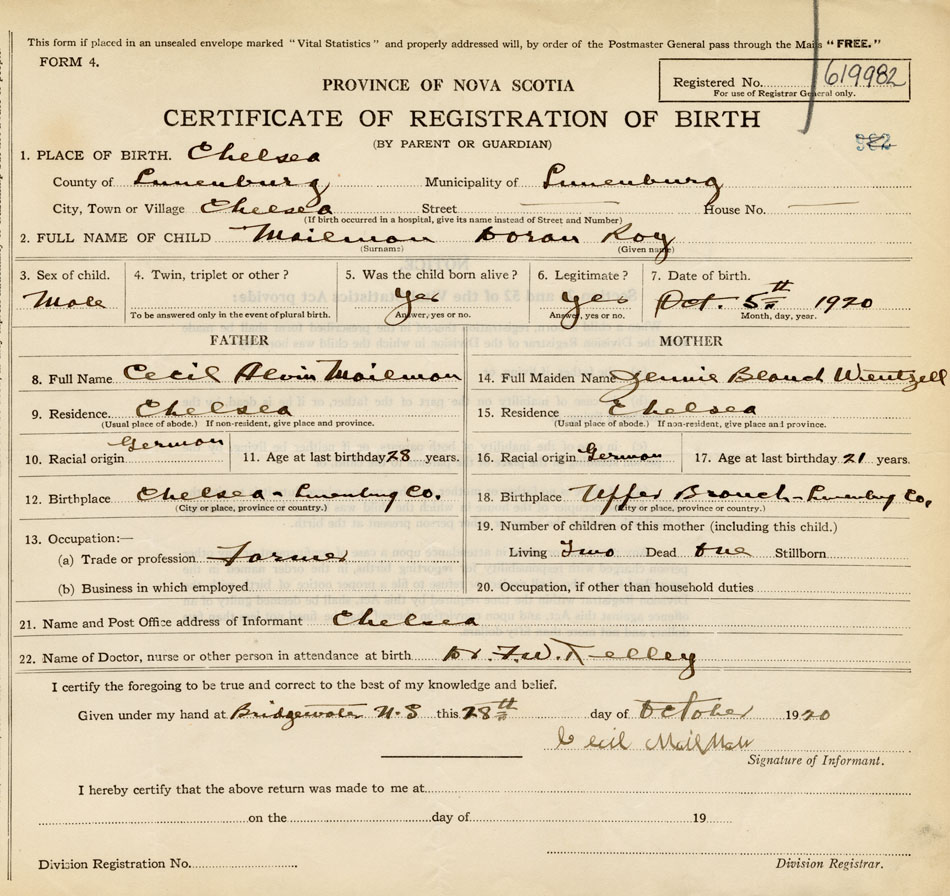 This form if placed in an unsealed envelope marked "Vital Statistics" and properly addressed will, by order of the Postmaster General pass through the Mails "FREE."
FORM 4.
Registered No. 619982
For use of Registrar General only.
PROVINCE OF NOVA SCOTIA
CERTIFICATE OF REGISTRATION OF BIRTH
(BY PARENT OR GUARDIAN)
1. PLACE OF BIRTH. Chelsea
County of Lunenburg Municipality of Lunenburg
City, Town or Village Chelsea Street House No.
(If birth occurred in a hospital, give its name instead of Street and Number)
2. FULL NAME OF CHILD Mailman Doran Roy
(Surname) (Given name)
3. Sex of child. 4. Twin, triplet or other? 5. Was the child born alive? 6. Legitimate? 7. Date of birth.
Male Yes Yes Oct. 5th 1920
To be answered only in the event of plural birth. Answer, yes or no. Answer, yes or no. Month, day, year.
FATHER
8. Full Name Cecil Alvin Mailman
9. Residence. Chelsea
(Usual place of abode.) If non-resident, give place and province.
10. Racial origin German 11. Age at last birthday 28 years.
12. Birthplace Chelsea - Lunenburg Co.
(City or place, province or country.)
13. Occupation:—
(a) Trade or profession Farmer
(b) Business in which employed
MOTHER
14. Full Maiden Name Jennie Blanch Wentzell
15. Residence Chelsea
(Usual place of abode.) If non-resident, give place and province.
16. Racial origin German 17. Age at last birthday 21 years.
18. Birthplace Upper Branch - Lunenburg Co.
(City or place, province or country.)
19. Number of children of this mother (including this child.)
Living Two Dead One Stillborn
20. Occupation, if other than household duties
21. Name and Post Office address of Informant Chelsea
22. Name of Doctor, nurse or other person in attendance at birth Dr. F. W. Kelley
I certify the foregoing to be true and correct to the best of my knowledge and belief.
Given under my hand at Bridgewater N.S this 28th day of October 1920
Cecil Mailman
Signature of Informant.
I hereby certify that the above return was made to me at
on the day of 19
Division Registration No.
Division Registrar.